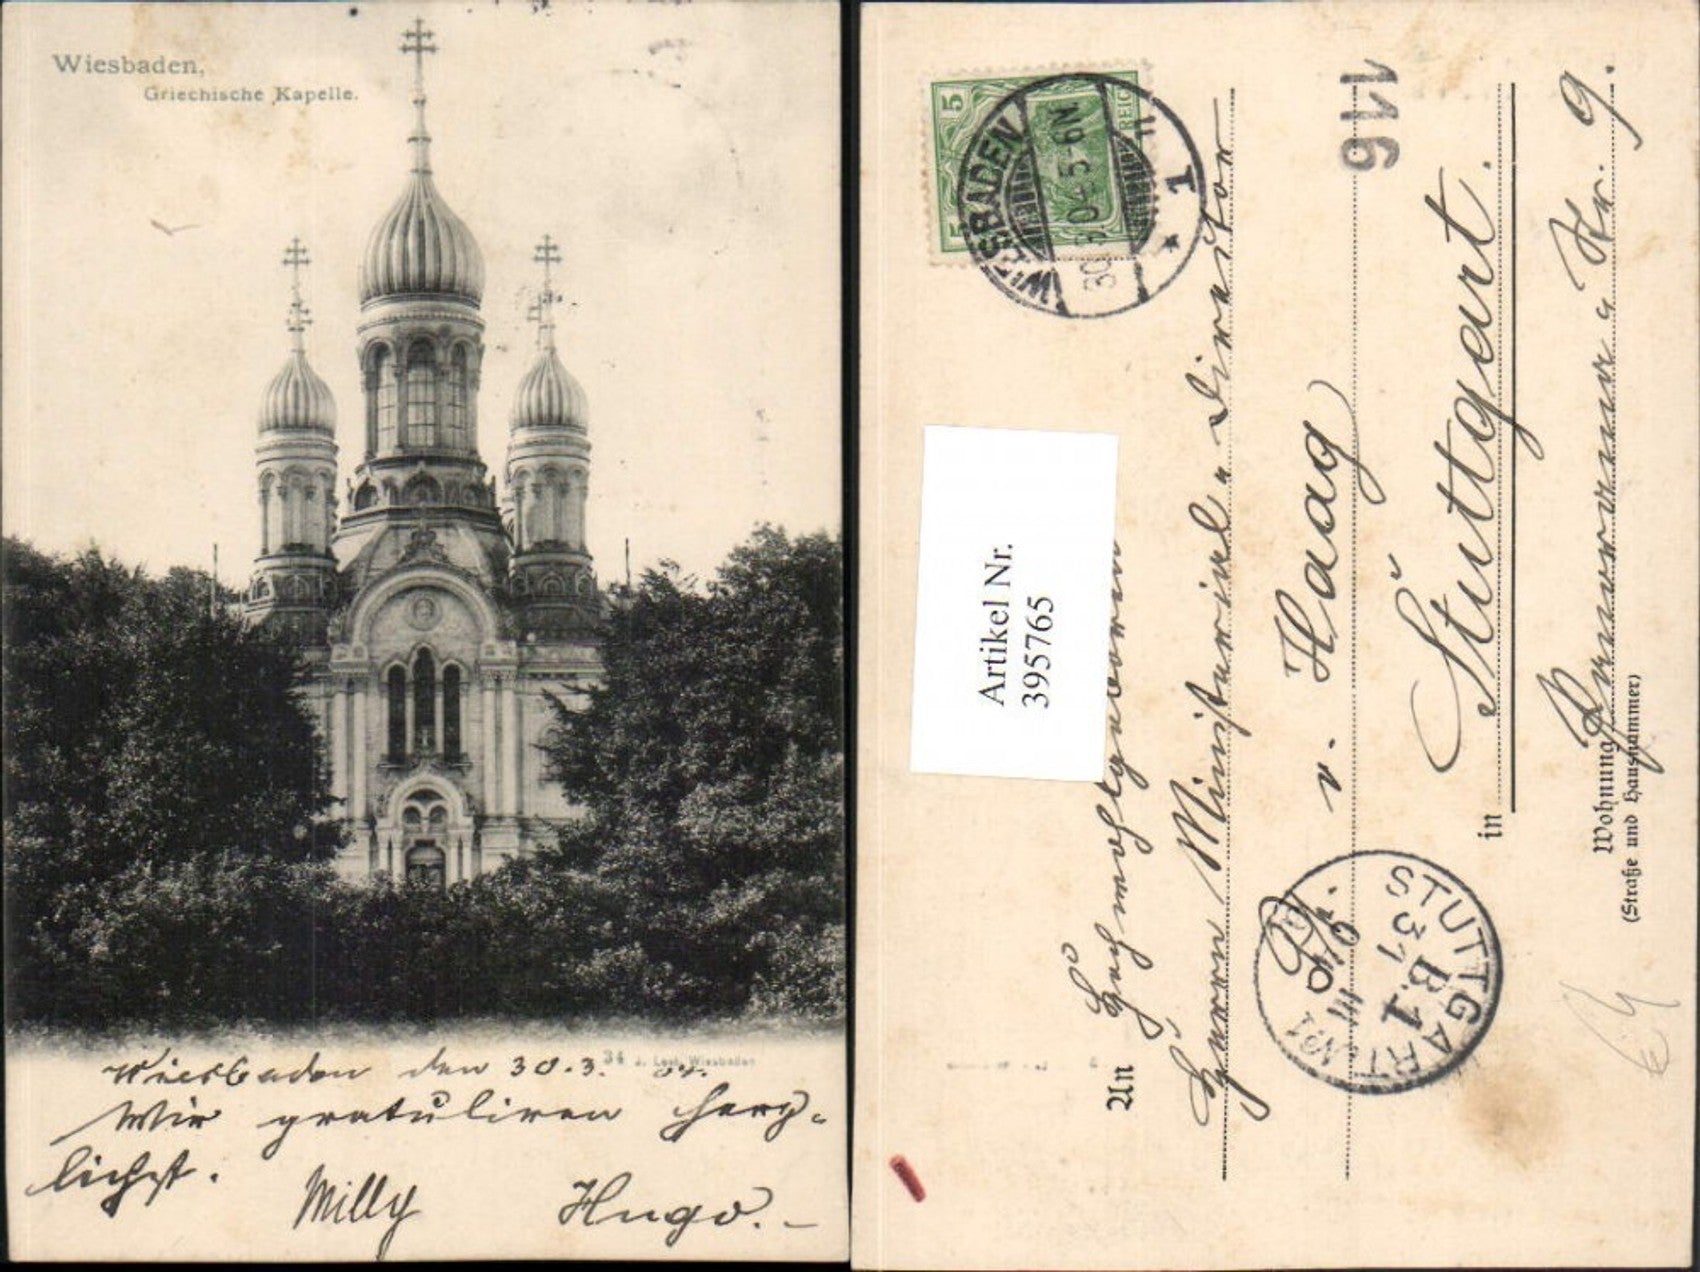 Wiesbaden,
Griechische Kapelle.
34 J. Wiesbaden
Wiesbaden den 30.3. 04.
Wir gratuliren herz-
lichst.
Milly Hugo.
5 5
REICH
WIESBADEN
30 3 04 5-6N
* 1
116
Artikel Nr.
395765
An Hochwohlgeboren
Herrn Ministerial-Direktor
v. Haag
in Stuttgart.
Wohnung Nr. 9.
(Straße und Hausnummer)
STUTTGART No1
31 III
B.1